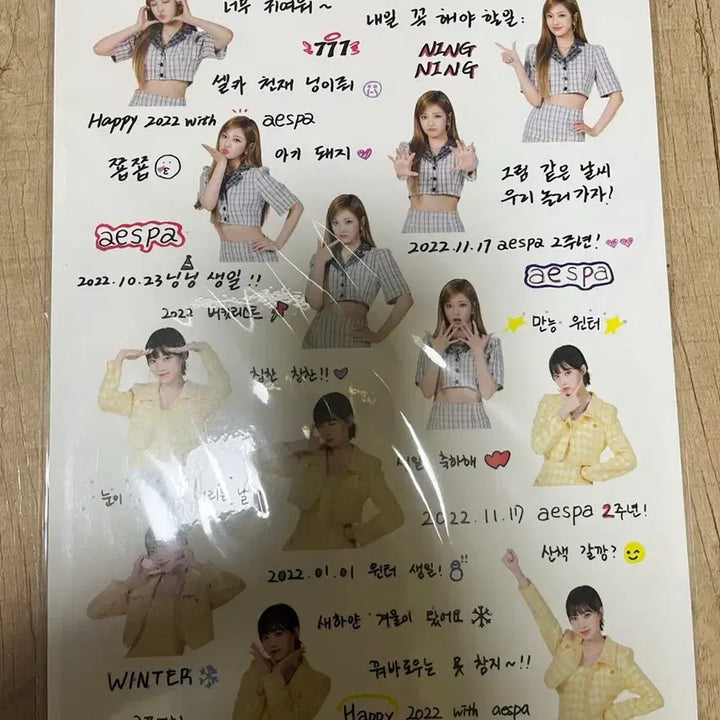 너무 귀여워 ~
내일 꼭 해야 할일:
777
NING
NING
셀카 천재 닝이줘
Happy 2022 with aespa
쫍쫍
아기 돼지
그럼 같은 날씨
우리 놀러가자!
aespa
2022.11.17 aespa 2주년!
2022.10.23 닝닝 생일!!
aespa
2022 버킷리스트
만능 윈터
칭찬 칭찬!!
생일 축하해
눈이
날
2022.11.17 aespa 2주년!
산책 갈깡?
2022.01.01 윈터 생일!
새하얀 겨울이 왔어요
WINTER
꿔바로우는 못 참지~!!
Happy 2022 with aespa